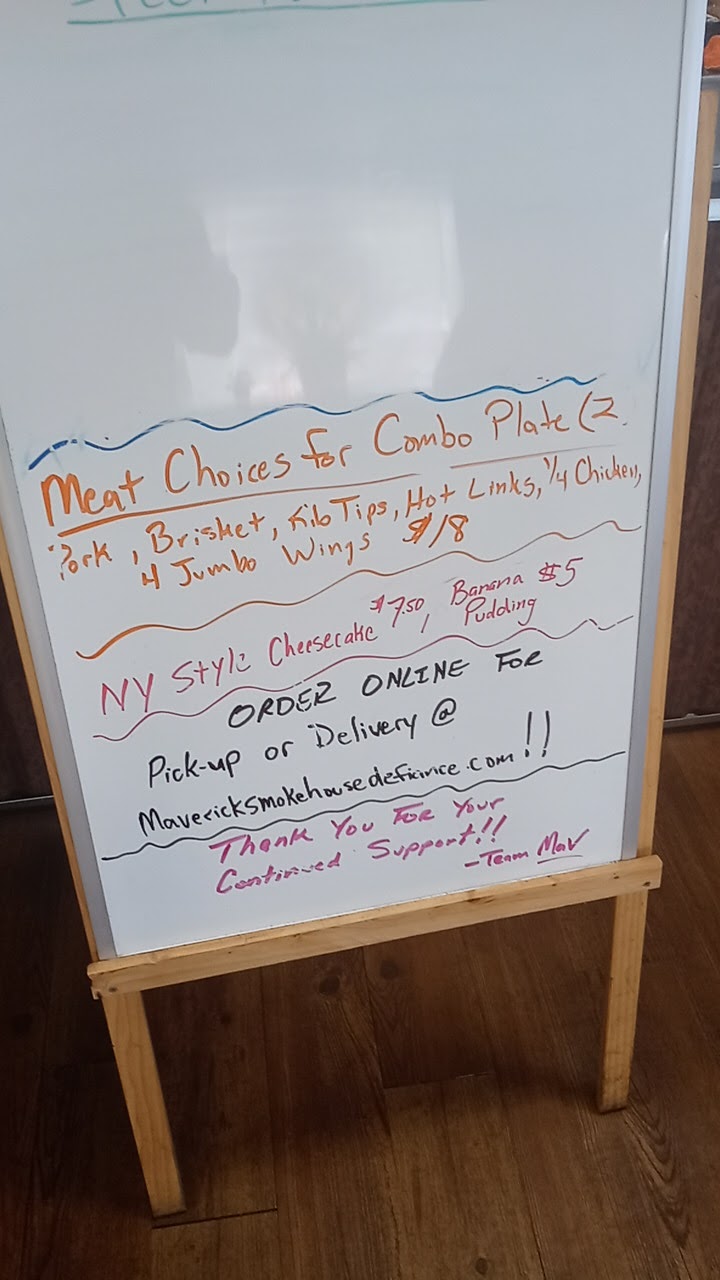 Meat Choices for Combo Plate (2
Pork, Brisket, Rib Tips, Hot Links, 1/4 Chicken,
4 Jumbo Wings $18
NY Style Cheesecake $7.50, Banana $5
Pudding
ORDER ONLINE FOR
Pick-up or Delivery @
Mavericksmokehousedefiance.com!!
Thank You For Your
Continued Support!!
-Team Mav